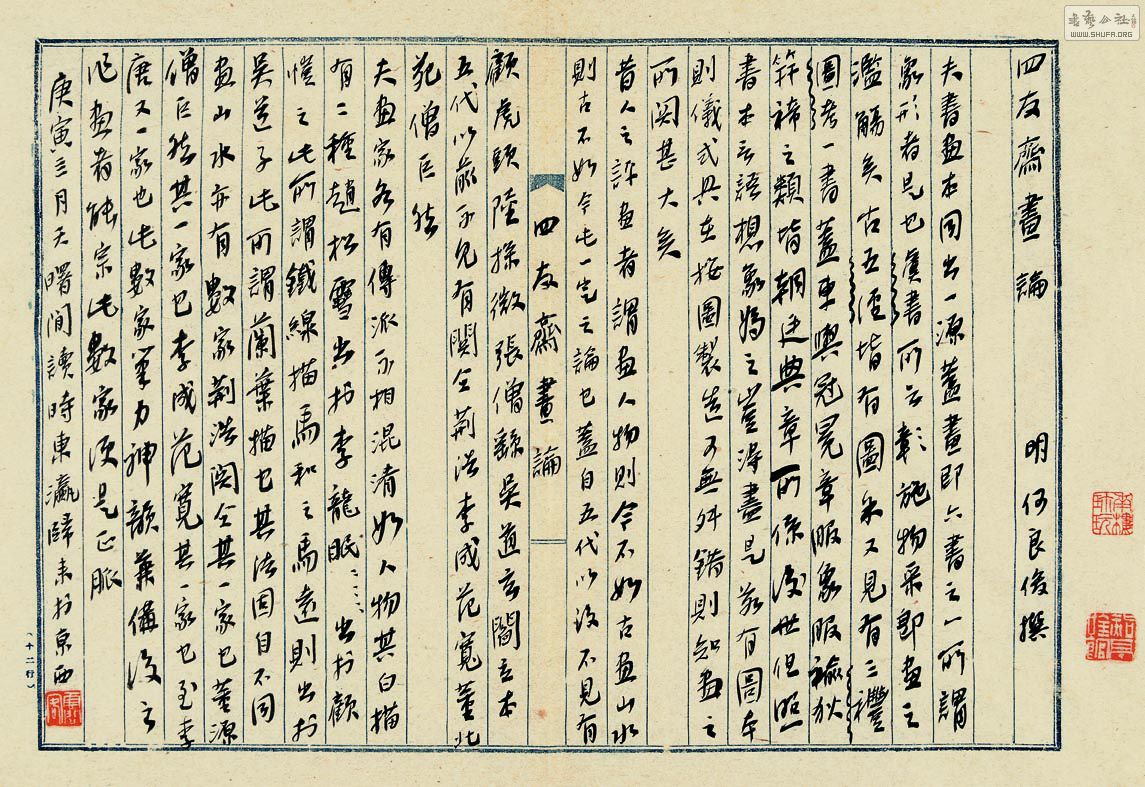 四友齋畫論 明何良俊撰
夫書畫本同出一源蓋畫即六書之一所謂
象形者是也虞書所云彰施物采即畫之
濫觴矣古五經皆有圖余又見有三禮
圖考一書蓋車輿冠冕章服象服褕狄
笄禘之類皆朝廷典章所係後世但照
書本言語想象為之豈得盡是若有圖本
則儀式具在按圖製造可無舛錯則知畫之
所関甚大矣
昔人之評畫者謂畫人物則今不如古畫山水
則古不如今此一定之論也蓋自五代以後不見有
四友齋畫論
顧虎頭陸探微張僧繇吳道玄閻立本
五代以前不見有関仝荊浩李成范寬董北
苑僧巨然
夫畫家各有傳派不相混淆如人物其白描
有二種趙松雪出於李龍眠、、、出於顧
愷之此所謂鐵線描馬和之馬遠則出於
吳道子此所謂蘭葉描也其法固自不同
畫山水亦有數家荊浩関仝其一家也董源
僧巨然其一家也李成范寬其一家也至李
唐又一家也此數家筆力神韻兼備後之
作畫者能宗此數家便是正脈
庚寅三月天曙間讀時東瀛歸來於京西
(十二行)
书艺公社
WWW.SHUFA.ORG